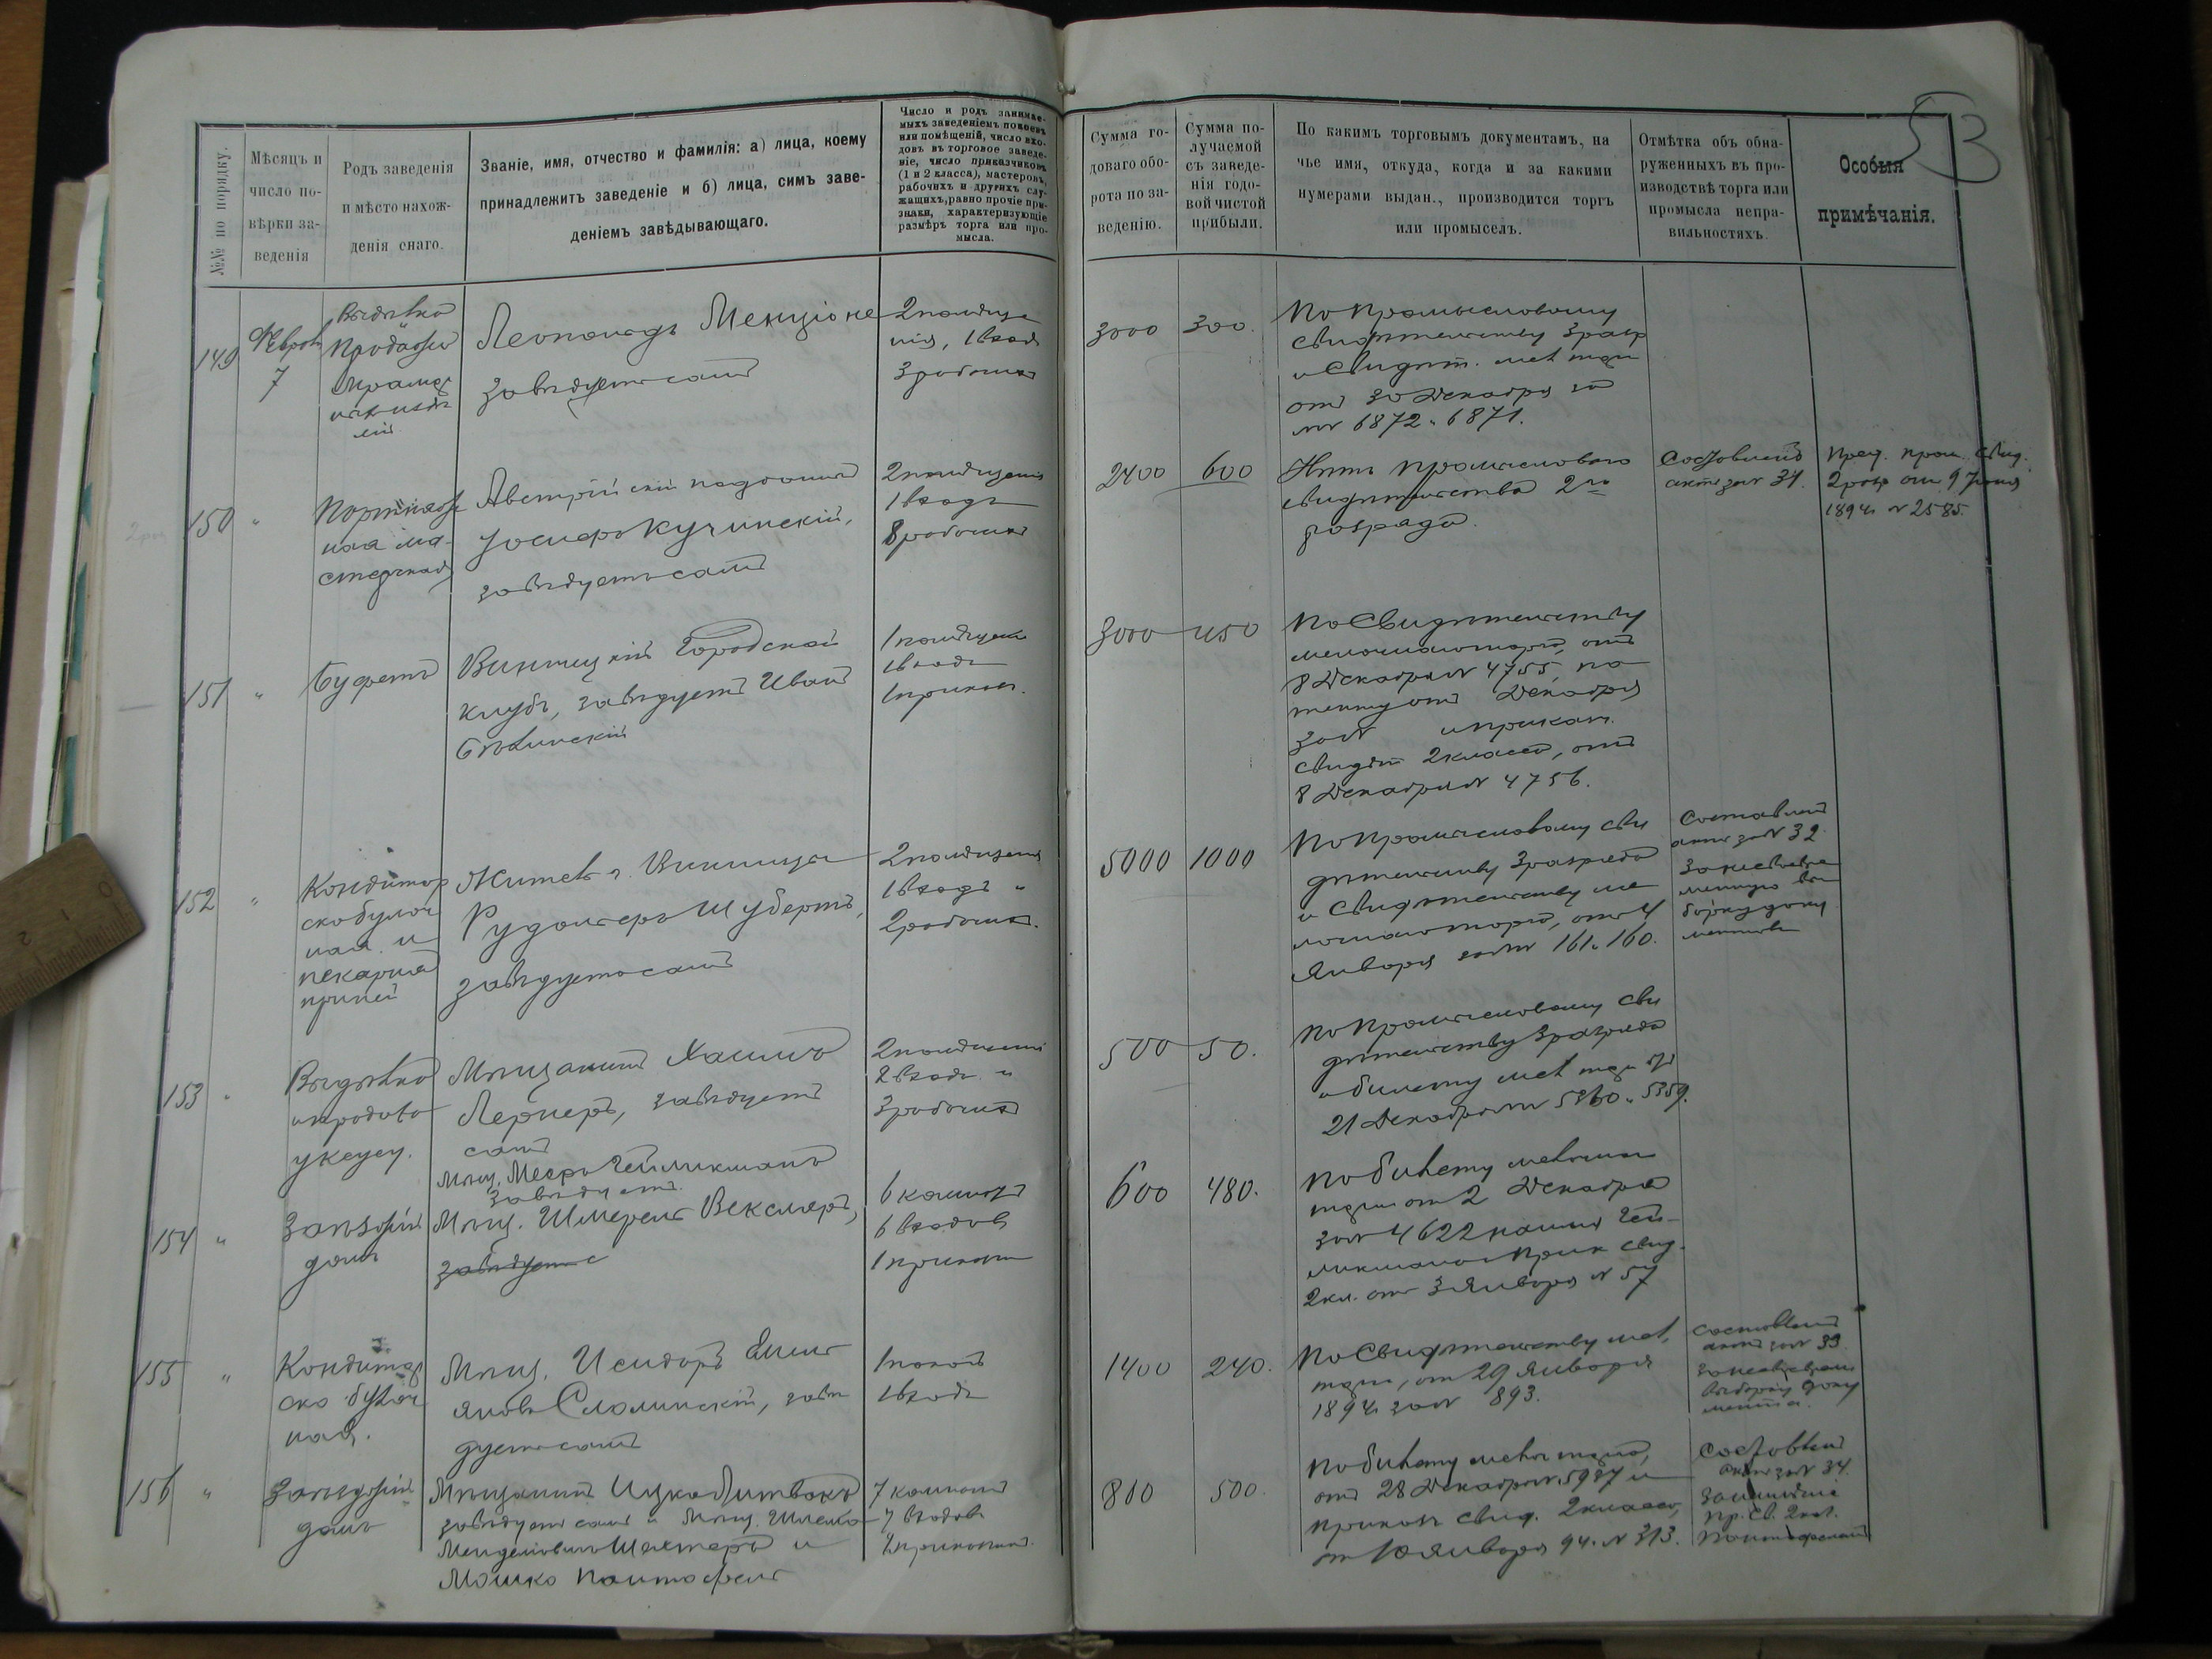 53
№№ по порядку.
Мѣсяцъ и
число по-
вѣрки за-
веденія
Родъ заведенія
и мѣсто нахож-
денія онаго.
Званіе, имя, отчество и фамилія: а) лица, коему
принадлежитъ заведеніе и б) лица, симъ заве-
деніемъ завѣдывающаго.
Число и родъ занимае-
мыхъ заведеніемъ покоевъ
или помѣщеній, число вхо-
довъ въ торговое заведе-
ніе, число приказчиковъ
(1 и 2 класса), мастеровъ,
рабочихъ и другихъ слу-
жащихъ, равно прочіе при-
знаки, характеризующіе
размѣръ торга или про-
мысла.
Сумма го-
доваго обо-
рота по за-
веденію.
Сумма по-
лучаемой
съ заведе-
нія годо-
вой чистой
прибыли.
По какимъ торговымъ документамъ, на
чье имя, откуда, когда и за какими
нумерами выдан., производится торгъ
или промыселъ.
Отмѣтка объ обна-
руженныхъ въ про-
изводствѣ торга или
промысла непра-
вильностяхъ.
Особыя
примѣчанія.
149
7
Выдѣлка
Леопольдъ
завѣдуетъ самъ
2 помѣще
нія, 1 входъ
3 рабочихъ
3000
300.
По промысловому
свидѣтельству 3 разр
и свидѣт. мел торг
отъ 30 Декабря за
№№ 6872 и 6871.
150 "
Портняж
ная ма-
стерская
Австрійскій подданный
Іосифъ Кучинскій,
завѣдуетъ самъ
2 помѣщенія
1 входъ
8 рабочихъ
2400
600
Нѣтъ промысловаго
свидѣтельства 2го
разряда.
Составленъ
актъ за № 31.
Пред. пром. свид.
2 разр отъ 9 Іюня
1894 г № 2585.
151 "
Буфетъ
Винницкій Городской
клубъ, завѣдуетъ Иванъ
1 помѣщен
1 входъ
1 приказ.
3000
450
По свидѣтельству
мелочнаго торга, отъ
8 Декабря № 4755, па
тенту отъ Декабря
за № и приказ.
свидѣт 2 класса, отъ
8 Декабря № 4756.
152 "
Кондитор
ско булоч
ная и
пекарня
при ней
Житель г. Винницы
Рудольфъ Шубертъ,
завѣдуетъ самъ
2 помѣщенія
1 входъ "
2 рабочихъ.
5000
1000
По промысловому сви
дѣтельству 3 разряда
и свидѣтельству ме
лочнаго торга, отъ 4
Января за №№ 161 и 160.
Составленъ
актъ за № 32
за несвоевре
менную вы
борку доку
ментовъ
153 "
Выдѣлка
и продажа
уксусу.
Мѣщанинъ Хаимъ
Лернеръ, завѣдуетъ
самъ
2 помѣщенія
2 входа "
3 рабочихъ
500
50.
По промысловому сви
дѣтельству 3 разряда
и билету мел торг
21 Декабря №№ 5360 и 5359.
154 "
Заѣзжій
домъ
завѣдуетъ
Мѣщ. Шмерель Векслеръ,
завѣдуетъ с
6 комнатъ
6 входовъ
1 приказч
600
480.
По билету мелочнаго
торга отъ 2 Декабря
за № 4622 на имя Гей-
ликмана и прик свид.
2 кл. отъ 3 Января № 57
155 "
Кондитор
ско булоч
ная.
Мѣщ. Исидоръ
Сломинскій, завѣ
дуетъ самъ
1 покой
1 входъ
1400
240.
По свидѣтельству мел.
торга, отъ 29 Января
1894 г за № 893.
Составленъ
актъ за № 33
за несвоеврем
выборку доку
мента.
156 "
Заѣзжій
домъ
Мѣщанинъ Ицко Литвакъ
завѣдуетъ самъ и Мѣщ. Шлема
Менделевичъ Шехтеръ и
Мошко Пантофель
7 комнатъ
7 входовъ
800
500.
По билету мелоч торга,
отъ 28 Декабря № 5987 и
приказ свид. 2 класса,
отъ 10 Января 94 г. № 313.
Составленъ
актъ за № 34
за неимѣніе
пр. св. 2 кл.